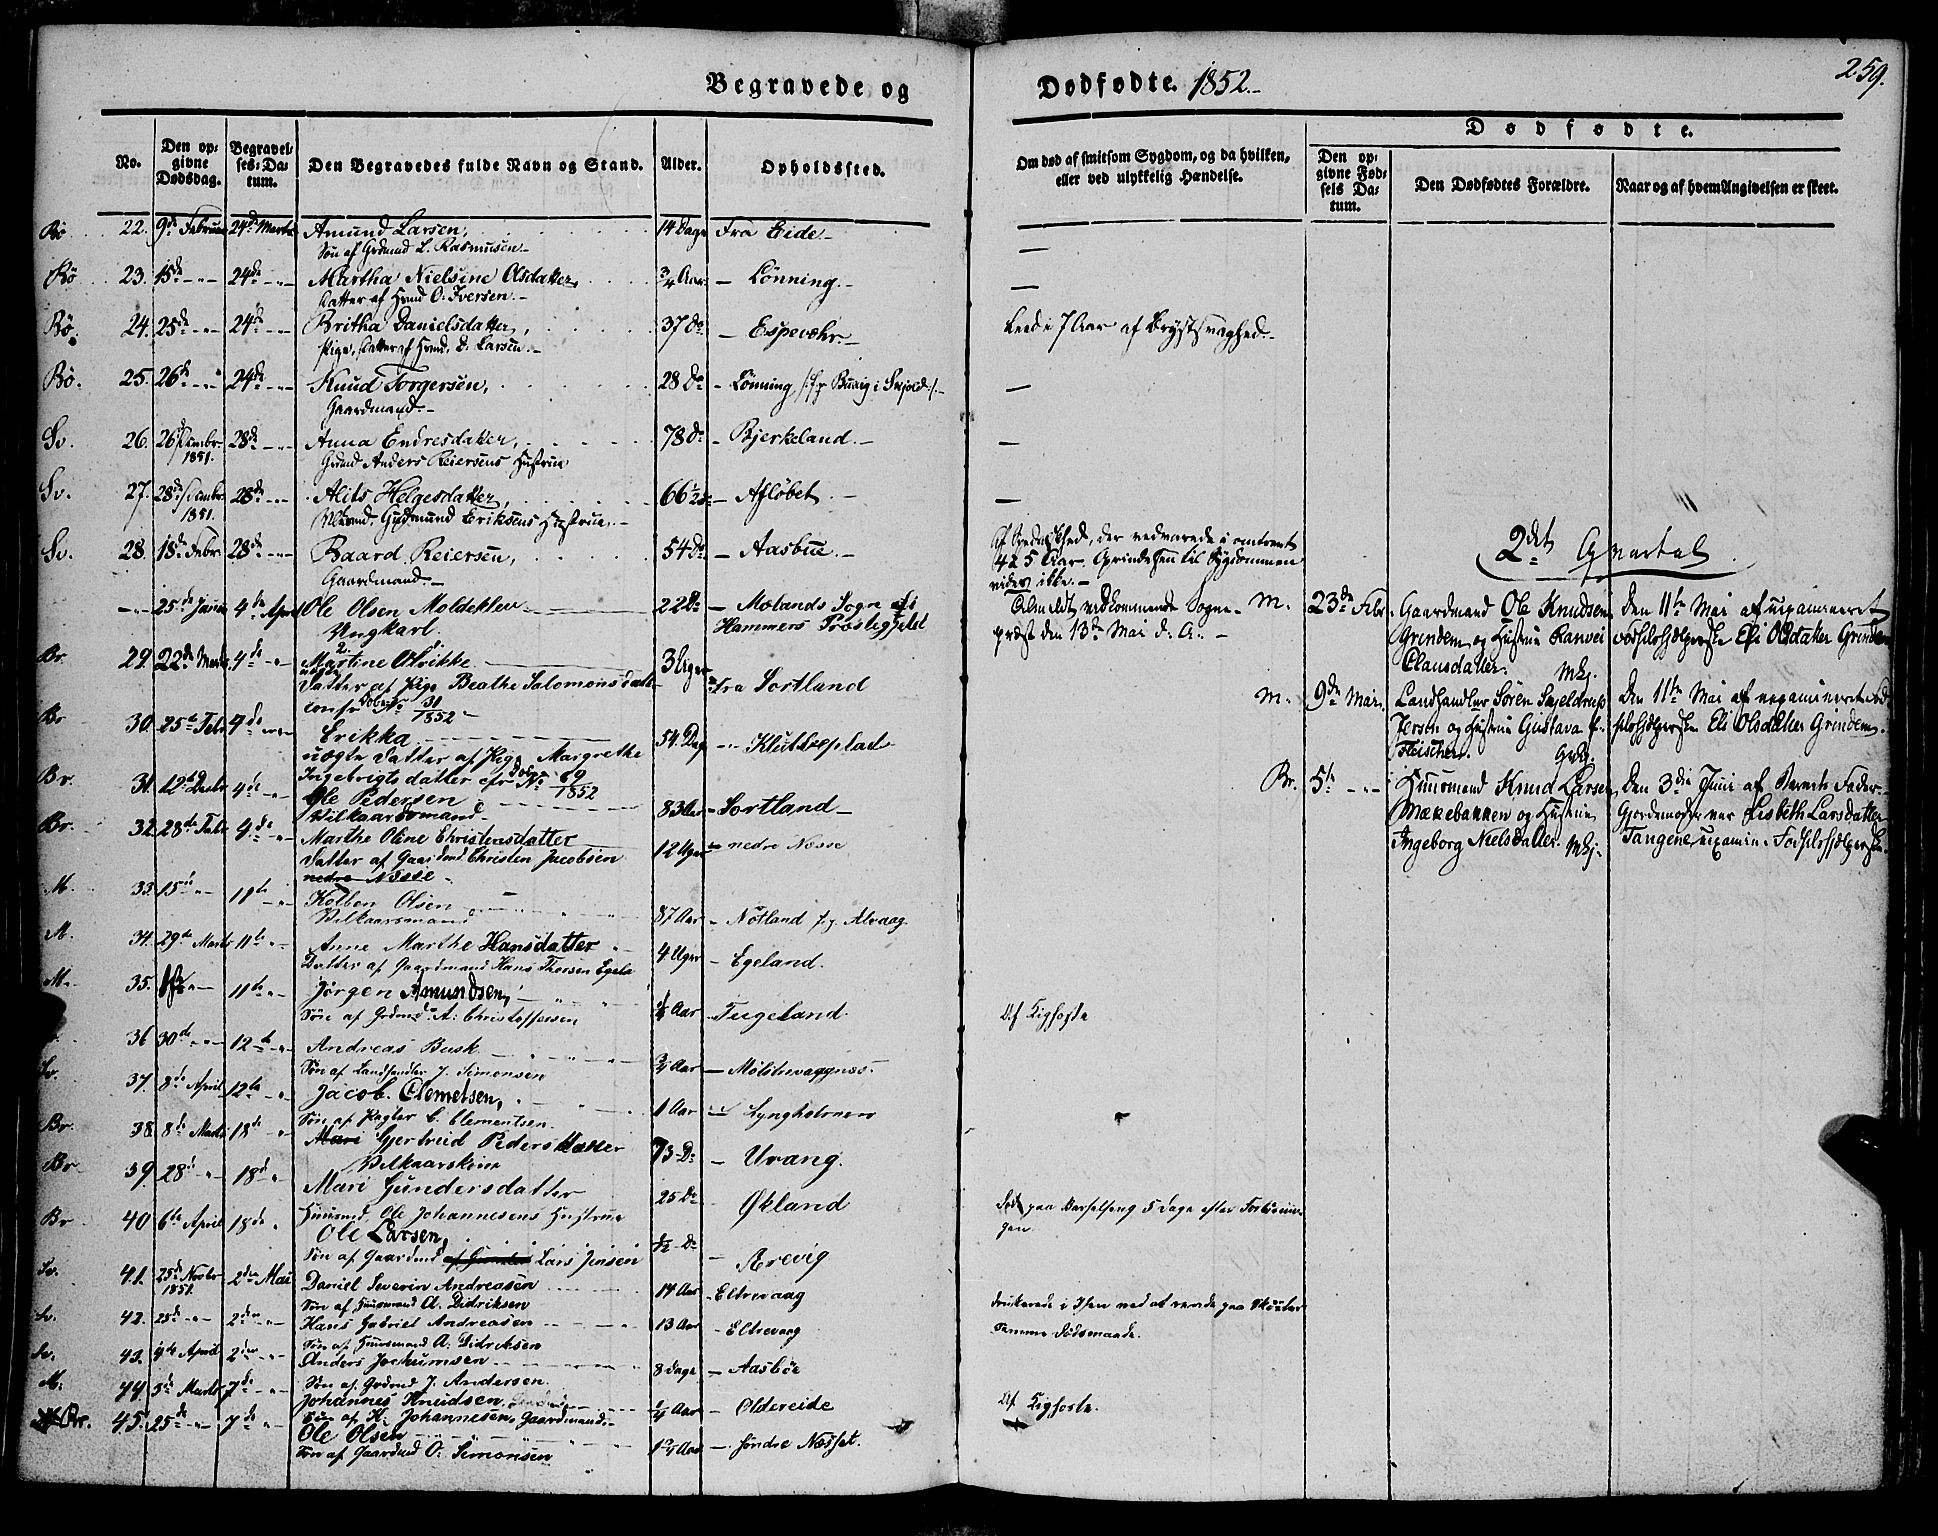 Begravede og
Dødfødte. 1852.-
259.
No.
Den opgivne Dødsdag.
Begravelses-Datum.
Den Begravedes fulde Navn og Stand.
Alder.
Opholdssted.
Om død af smitsom Sygdom, og da hvilken,
eller ved ulykkelig Hændelse.
Dødfødte.
Den opgivne Fødsels Datum.
Den Dødfødtes Forældre.
Naar og af hvem Angivelsen er skeet.
Rø 22. 9de Februar 24de Marts Amund Larsen, 14 Dage Fra Eide -
Søn af Grdmd L. Rasmusen -
Rø 23. 15de - " - 24de - " - Martha Nielsine Olsdatter, 3/4 Aar - Lønning -
Datter af Hmd O. Iversen -
Rø. 24. 25de - " - 24de - " - Britha Danielsdatter, 37 Do - Espevæhr - Leed i 7 Aar af Brystsvaghed.-
Pige, Datter af Hmd. D. Larsen.-
Rø. 25. 26de - " - 24de - " - Knud Torgersen, 28 Do - Lønning
Gaardmand.-
Sv. 26. 26de Decembr 1851. 28de - " - Anna Endresdatter, 78 Do - Bjerkeland.-
Grdmd Anders Reiersens Hustrue
Sv. 27. 28de Decembr 1851. 28de - " - Alits Helgesdatter, 66 1/2 Do - Afløbet. -
Gudmund Eriksens Hustrue.-
Sv. 28. 18de Febr. 28de - " - Baard Reiersen, 54 Do - Aasbue.-
Gaardmand.-
der vedvarede i omtrent
4 à 5 Aar. Oprindelsen til Sygdommen
vides ikke.-
2det Qvartal
25de Januar 4de April Ole Olsen Moldeklev 22 Do - Mælands Sogn i
Ungkarl. Hammers Præstegjeld
Anmeldt vedkommende Sogne-
præst den 13de Mai d. A. -
M. 23de Febr. Gaardmand Ole Knudsen
Grindem og Hustrue Ranvei
Clausdatter. Mkj.
Den 11te Mai af uexamineret
Fødselshjelperske Eli Olsdatter Grindem
Br. 29. 22de Marts 4de - " - Martine Olrikke 3 Uger Fra Sortland
uægte
Datter af Pige Beathe Salomonsdatter
confr. Døbe No 31/1852 -
M. 9de Mai. Landhandler Søren Skjeldrup
Iersen og Hustrue Gustava f.
Fleischer. Qvkj.
Den 11te Mai af uexamineret Fød-
selshjelperske Eli Olsdatter Grindem.
Br 30. 25de Febr 4de Erikka 54 Dag " - Klubbeplads
uægte Datter af Pige Margrethe
Ingebrigtsdatter cfr Døbe No 69/1852
Br. 31. 12te Decbr 4de - " Ole Pedersen 83 Aar - Sortland -
Vilkaarsmand -
Br. 5te - " - Huusmand Knud Larsen
Møkebakken og Hustrue
Ingeborg Nielsdatter. Mkj.
Den 3die Juni af Barnets Fader.
Gjordemoder var Lisbeth Larsdatter
Tangene, uexamin. Fødselshjelperske.
Br. 32. 28de Febr 4de - " Marthe Oline Christensdatter 12 Uger - nedre Næsse
Datter af Gaardmd Christen Jacobsen
nedre Næsse -
M. 33. 15de - " - 11te - " - Kolben Olsen 87 Aar - Nøtland
Vilkaarsmand
M. 34. 29de Marts 11te - " - Anne Marthe Hansdatter 4 Uger - Egeland.
Datter af Gaardmand Hans Thorsen Egela
M. 35. 11te - " - Jørgen Amundsen, 1/4 Aar - Tugeland. Af Kighoste
Søn af Grdmd. A. Christoffersen
36 30de - " - 12te - " - Andreas Busk 3/4 Aar - Møklevaagnæs.
Søn af Landhandler J. Simonsen
Sv. 37. 8de April 12te - " Jacob Clemetsen, 1 Aar - Lyngholmen
Søn af C. Clementsen.
Br. 38. 8de Marts 18de - " Mari Gjertrud Pedersdatter 73 Do - Urang.
Vilkaarskone
Br. 39. 28de - " 18de - " Mari Gundersdatter 25 Do - Økland
Huusmd. Ole Johannesens Hustrue
Død paa Barselseng 5 Dage efter Forløsnin-
gen.
Br 40 6te April 18de - Ole Larsen, 1/2 Do - Arevig
Søn af Gaardmd Lars Jensen
Sv. 41. 25de Novbr 1851. 2den Mai Daniel Severin Andreasen 14 Aar - Eltrevaag
Søn af Huusmand A. Didriksen
Druknede i Isen ved at rende paa Skøiter
Sv. 42. 25de - " - 2den - " - Hans Gabriel Andreasen 13 Aar - Eltrevaag
Søn af Huusmand A. Didriksen
Samme Dødsmaade.
Sv. 43. 4de April 2den - " - Anders Jochumsen 8 Dage - Aasbøe
Søn af Grdmd J. Andersen.
M. 44. 3de Marts 7de - " - Johannes Knudsen, 1/4 Aar - Oldereide Af Kighoste.
Søn af K. Johannesen, Gaardmand.-
Br. 45. 25de - " - 7de - " Ole Olsen 1 3/4 Aar - søndre Næsset.
Søn af Gaardmd O. Simonsen